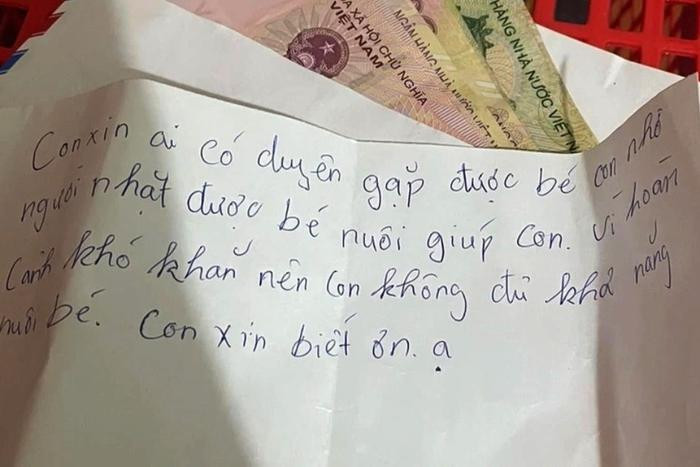 XÃ HỘI CHỦ NGHĨA
VIỆT NAM
NGÂN HÀNG NHÀ
HÀNG NHÀ NƯỚC VIỆT N
Con xin ai có duyên gặp được bé con nhờ
người nhặt được bé nuôi giúp con. Vì hoàn
cảnh khó khăn nên con không đủ khả năng
nuôi bé. Con xin biết ơn. ạ